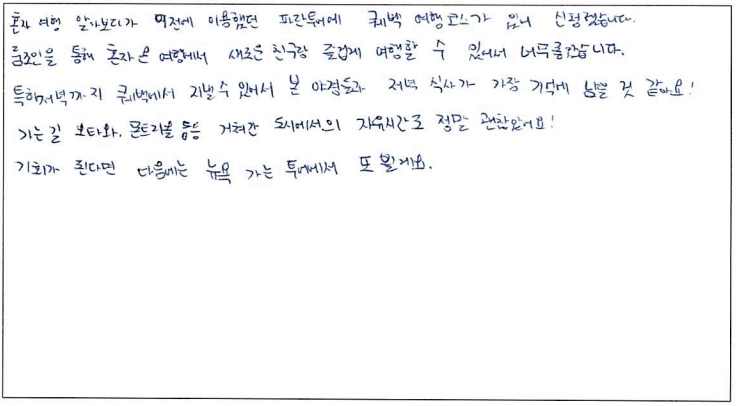 혼자 여행 알아보다가 예전에 이용했던 파란투어에 퀘백 여행코스가 있어 신청했습니다.
룸조인을 통해 혼자 온 여행에서 새로운 친구랑 즐겁게 여행할 수 있어서 너무좋았습니다.
특히 저녁까지 퀘백에서 지낼 수 있어서 본 야경들과 저녁 식사가 가장 기억에 남을 것 같아요!
가는길 오타와, 몬트리올 등등 거쳐간 도시에서의 자유시간도 정말 괜찮았어요!
기회가 된다면 다음에는 뉴욕 가는 투어에서 또 뵐게요.